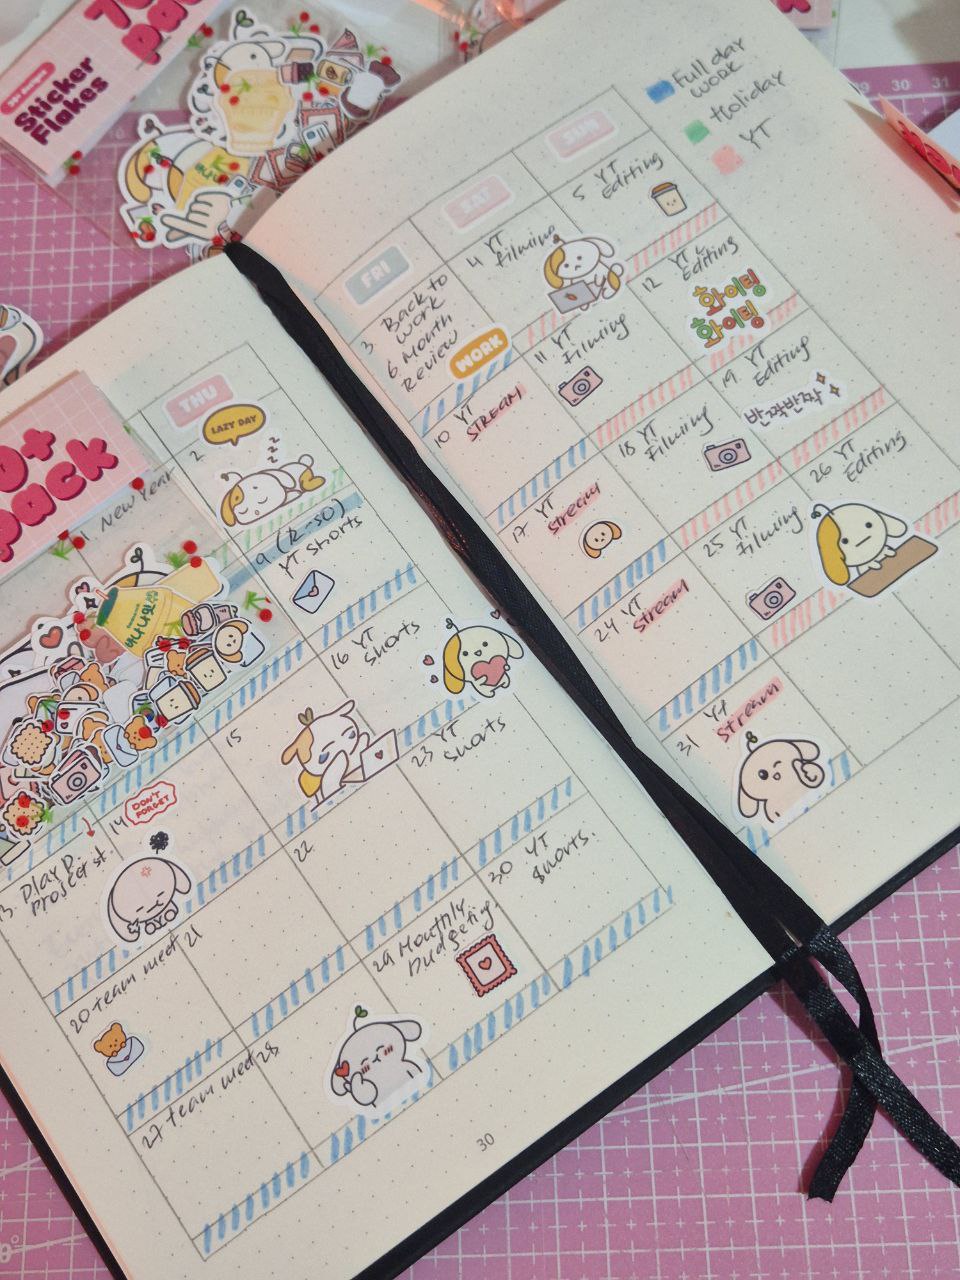 Sticker
Flakes
pack
30
31
Full day
work
Holiday
YT
FRI
SAT
SUN
3
Back to
work
6 Month
Review
WORK
4 YT
filming
5 YT
Editing
10 YT
STREAM
11 YT
Filming
12 YT
Editing
화이팅
화이팅
17 YT
Stream
18 YT
Filming
19 YT
Editing
반짝반짝
24 YT
Stream
25 YT
Filming
26 YT
Editing
31 YT
Stream
THU
1 New Year
2
LAZY DAY
zzz
9
YT Shorts
바나나원우
13 Play D
Project st
14
DON'T
FORGET
15
16 YT
Shorts
20 team meet
21
22
23 YT
Shorts
27 team meet
28
29 Monthly
Budgeting.
30 YT
Shorts.
30